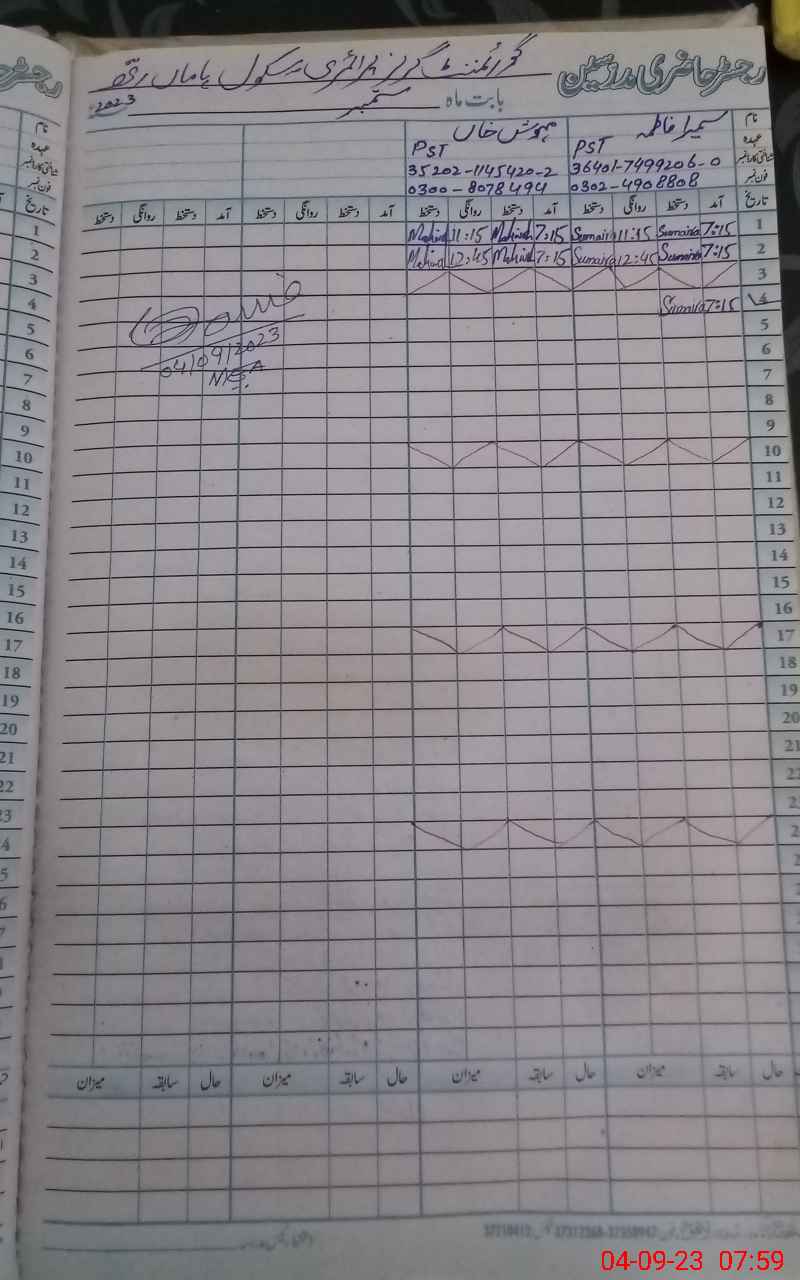 رجسٹر حاضری مدرسین
گورنمنٹ گرلز پرائمری سکول
بابت ماہ ستمبر 2023
نام سمیرا فاطمہ مہوش خاں
عہدہ PST PST
شناختی کارڈ نمبر 36401-7499206-0 35202-1145420-2
فون نمبر 0302-4908808 0300-8078494
تاریخ آمد دستخط روانگی دستخط آمد دستخط روانگی دستخط آمد دستخط روانگی دستخط آمد دستخط روانگی دستخط
1 7:15 Sumaira 11:15 Sumaira 7:15 Mahwish 11:15
2 7:15 Sumaira 12:45 Sumaira 7:15 12:45
3
4 7:15 Sumaira
5
04/09/2023
6
7
8
9
10
11
12
13
14
15
16
17
18
19
20
21
حال سابقہ میزان حال سابقہ میزان حال سابقہ میزان حال سابقہ میزان
04-09-23 07:59